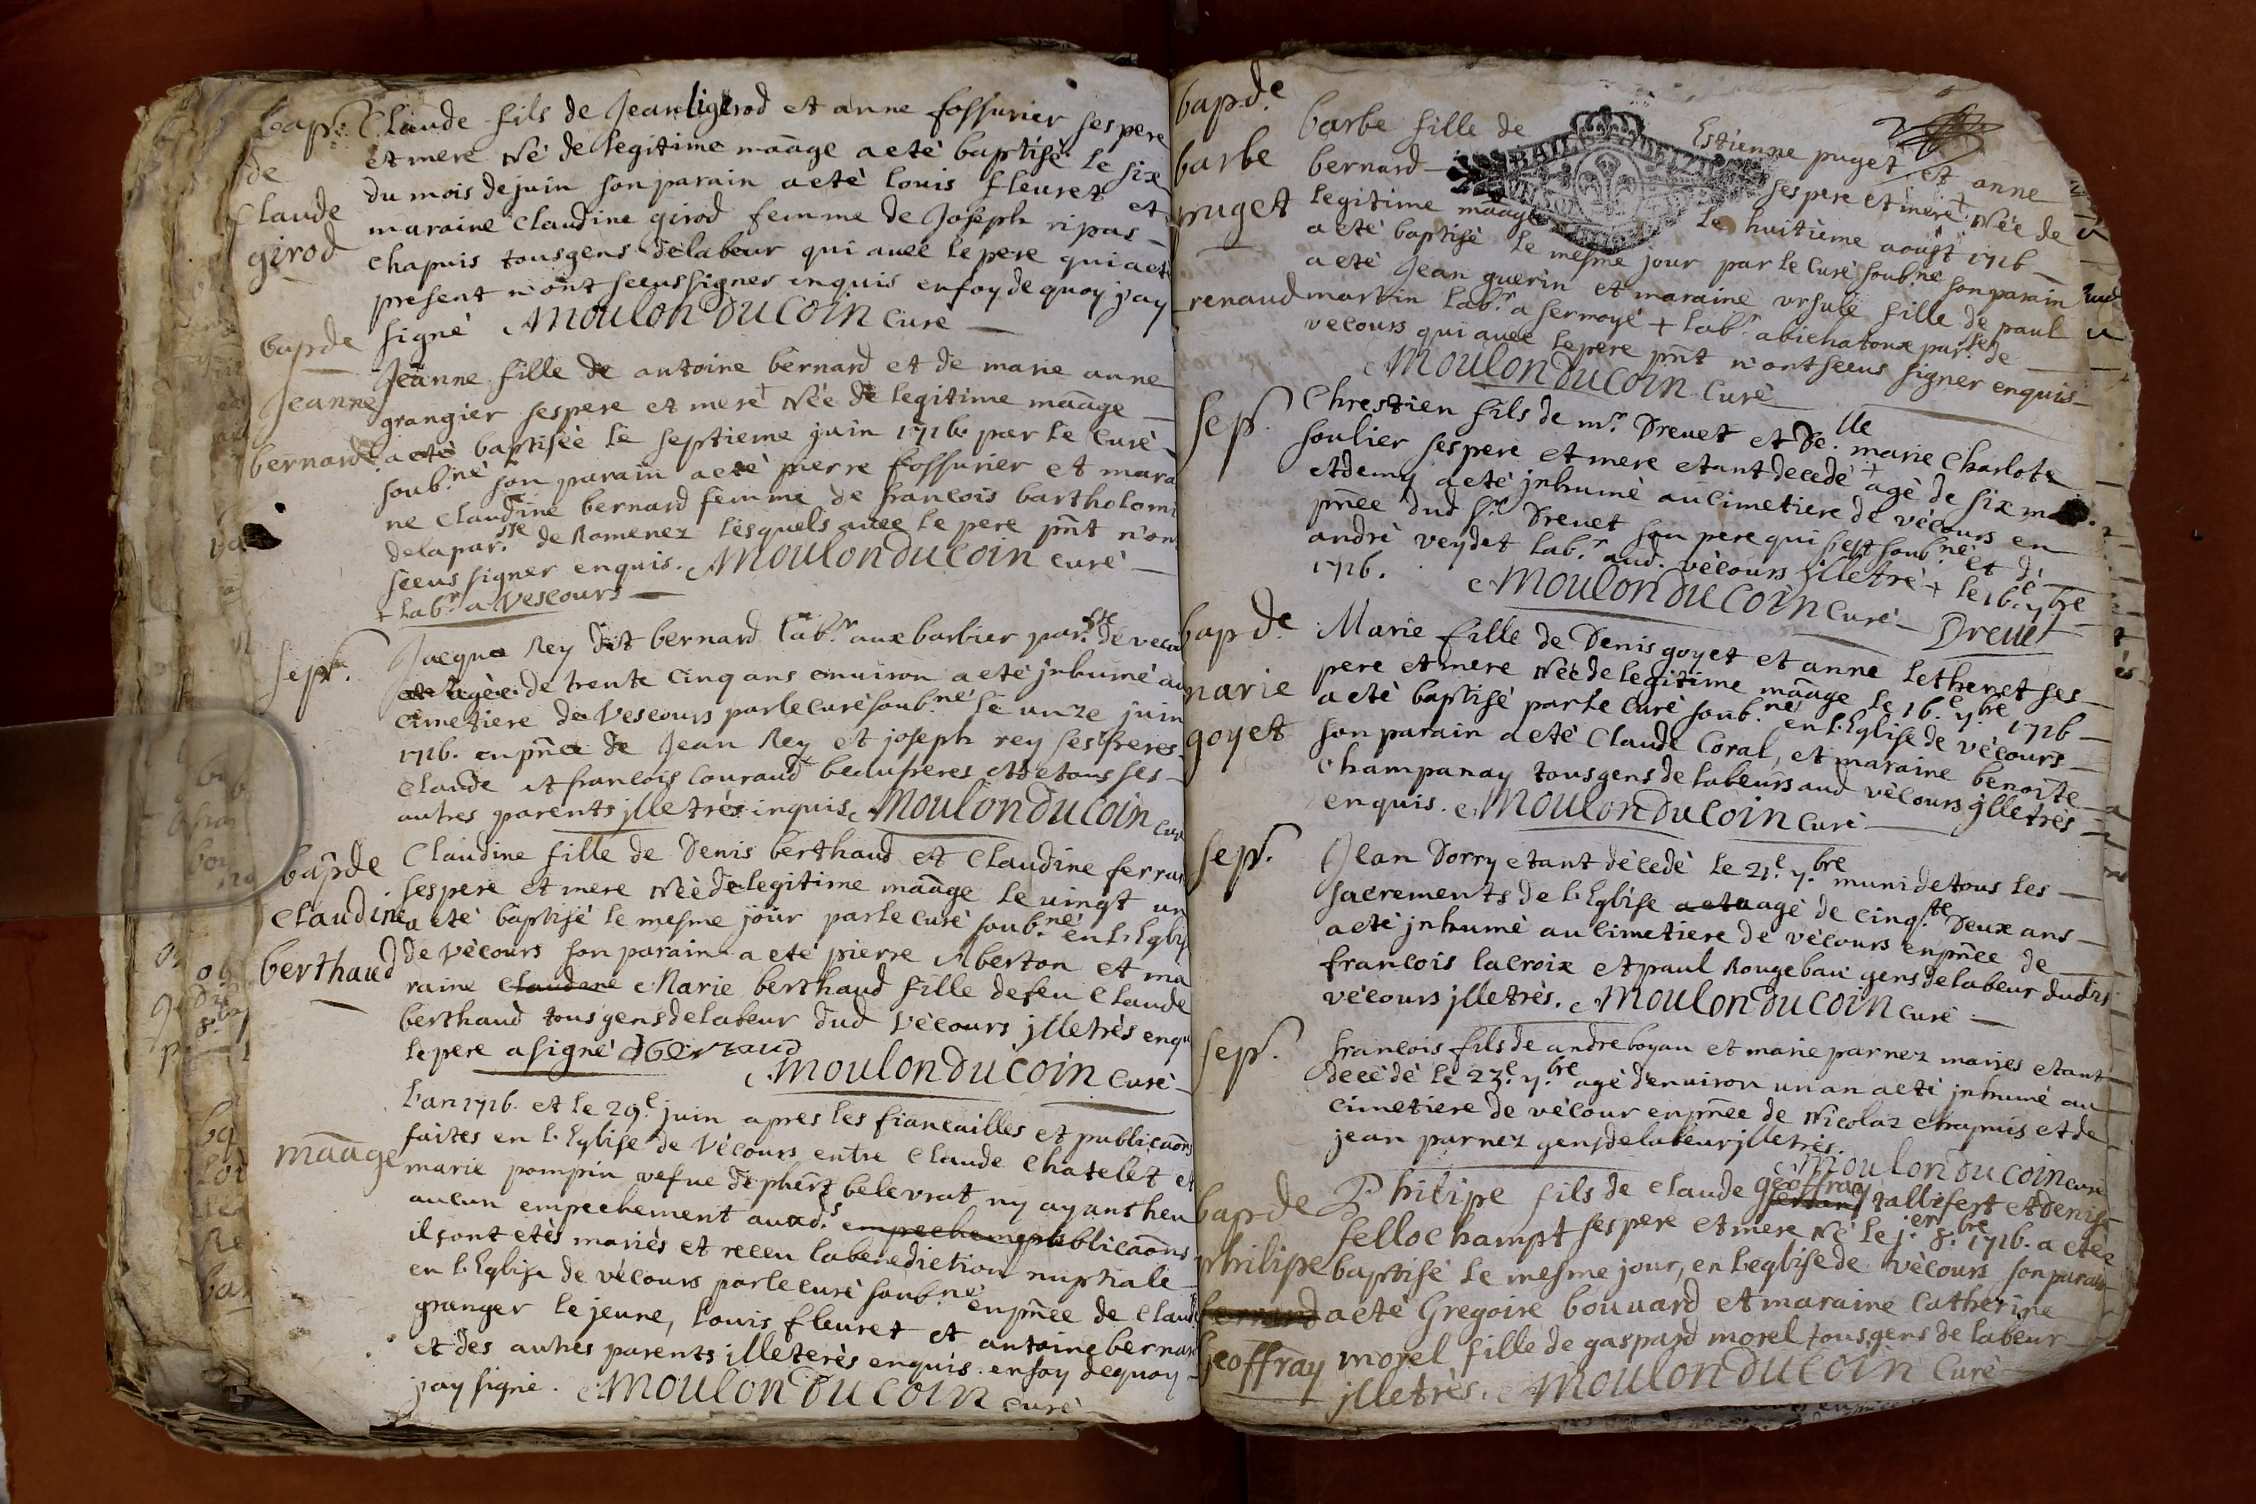 bap.
de
Claude
girod
Claude fils de Jean ligirod et anne fossurier ses pere
et mere né de legitime maãge a eté baptisé le six
du mois de juin son parain a eté louis fleuret et
maraine Claudine girod femme de Joseph ripas
chapuis tous gens de labeur qui avec le pere qui a eté
present n'ont sceus signer enquis en foy de quoy j'ay
signé Moulon Du Coin Curé
bap de
Jeanne
bernard
Jeanne fille de antoine bernard et de marie anne
grangier ses pere et mere + Née de legitime maãge
a eté baptisée le septieme juin 1716. par le Curé
soub.né son parain a eté pierre fossurier et marai
ne Claudine bernard femme de francois bartholomi
de la par.sse de Romenez lesquels avec le pere pñt n'ont
sceus signer enquis. Moulon Du Coin curé
+ lab.r a Vescours
sep.
Jacque Rey dit bernard lab.r aux barbier par.sse de vecou
agée de trente cinq ans environ a eté jnhumé au
cimetiere de Vescours par le curé soub.né le unze juin
1716. en pñce de Jean Rey et joseph rey ses freres
Claude et francois Couraud beaufreres et de tous ses
autres parents jlletrés inquis. Moulon Du Coin Curé
bap de
Claudine
berthaud
Claudine fille de Denis berthaud et Claudine ferra
ses pere et mere Née de legitime maãge le vingt un
a eté baptisé le mesme jour par le curé soub.né en l'Eglis
de Vécours son parain a eté pierre Aberton et ma
raine Claudine Marie berthaud fille de feu Claude
berthaud tous gens de labeur dud Vécours jlletrés enqu
le pere a signé dbertaud
Moulon Du Coin Curé
maãge
L'an 1716. et le 29.e juin apres les fiancailles et publicaõns
faites en l'Eglise de Vécours entre Claude Chatelet et
marie pompin vefue de belevrat ny ayant heu
aucun empechement auxd.s empechements publicaõns
il sont etés mariés et receu la benediction nuptiale
en l'Eglise de vécours par le curé soub.né en pñce de Claud
granger le jeune, louis fleuret et antoine bernar
et des autres parents jlleterés enquis. en foy de quoy
j'ay signé. Moulon Du Coin Curé
bap.de
barbe
puget
barbe fille de Estienne puget et anne
bernard ses pere et mere + Née de
legitime maãge le huitième aoust 1716
a eté baptisé le mesme jour par le Curé soub.né son parain
a eté Jean guerin et maraine ursule fille de paul
renaud martin lab.r a sermoyé + lab.r a bichatoux par.sse de
vecours qui avec le pere pñt n'ont sceus signer enquis
Moulon Du Coin Curé
sep.
Chrestien fils de m.r Drevet et De.lle marie Charlote
soulier ses pere et mere etant decedé + agé de six mois
et demy a eté jnhumé au cimetiere de vécours en
pñce dud s.r Drevet son pere qui s'est soub.né et d'
andré veydet lab.r aud. vécours jlletré + le 16.e 7.bre
1716. Moulon Du Coin Curé Drevet
bap de
marie
goyet
Marie fille de Denis goyet et anne lethenet ses
pere et mere Née de legitime maãge le 16.e 7.bre 1716
a eté baptisé par le Curé soub.né en l'Eglise de vécours
son parain a eté Claude Coral, et maraine benoite
Champanay tous gens de labeurs aud vécours jlletrés
enquis. Moulon Du Coin Curé
sep.
Jean Dorry etant décedé le 21.e 7.bre muni de tous les
sacrements de l'Eglise agé de cinq.te Deux ans
a eté jnhumé au cimetiere de vécours en pñce de
francois lacroix et paul Rougebau gens de labeur dud.
vécours jlletrés. Moulon Du Coin Curé
sep.
francois fils de andre boyau et marie parnez mariés etant
decédé le 23.e 7.bre agé d'environ un an a eté jnhumé au
cimetiere de vécour en pñce de Nicolaz chapuis et de
jean parnez gens de labeur jlletrés.
Moulon Du Coin Curé
bap de
philipe
ferrand
geoffray
Philipe fils de Claude geoffray tallifert et denise
fellochampt ses pere et mere Né le j.er 8.bre 1716. a etée
baptisé le mesme jour, en l'eglise de vécours son parain
a eté Gregoire bouvard et maraine Catherine
morel fille de gaspard morel tous gens de labeur
jlletrés. Moulon Du Coin Curé